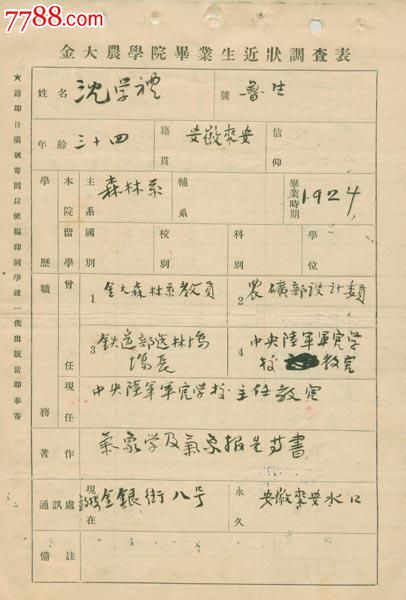 7788.com
金大農學院畢業生近狀調查表
★請即日填就寄回以便編印同學錄一俟出版當即奉寄
姓名 沈学禮 號 魯生
年齡 三十四 籍貫 安徽來安 信仰
學歷 本院 主系 森林系 輔系 畢業時期 1924
留學 國別 校別 科別 學位
職務 曾任 1 金大森林系教員 2 農礦部設计委員
3 鉄道部造林場
場長
4 中央陸軍軍官学
校 教官
現任 中央陸軍軍官学校主任教官
著作 氣象学及氣象报告等書
通訊處 現在 金銀街八号 永久 安徽來安水口
備註